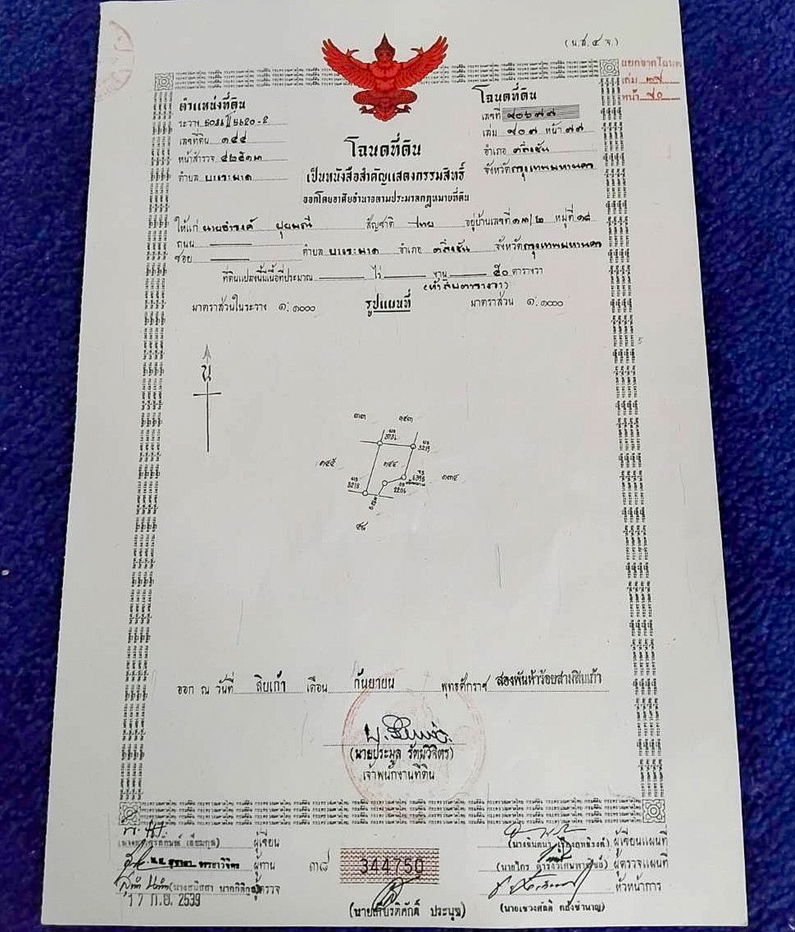 (น.ส.๔ จ.)
แยกจากโฉนด
เล่ม
หน้า ๙๐
ตำแหน่งที่ดิน
ระวาง
เลขที่ดิน ๑๔๔
หน้าสำรวจ ๔๒๕๑๓
ตำบล บางระมาด
โฉนดที่ดิน
เลขที่
เล่ม ๙๐๗ หน้า ๗๗
อำเภอ ตลิ่งชัน
จังหวัด กรุงเทพมหานคร
โฉนดที่ดิน
เป็นหนังสือสำคัญแสดงกรรมสิทธิ์
ออกโดยอาศัยอำนาจตามประมวลกฎหมายที่ดิน
ให้แก่ นายธำรงค์ สัญชาติ ไทย อยู่บ้านเลขที่ ๑๓/๒ หมู่ที่ ๑๘
ถนน
ซอย ตำบล บางระมาด อำเภอ ตลิ่งชัน จังหวัด กรุงเทพมหานคร
ที่ดินแปลงนี้มีเนื้อที่ประมาณ ไร่ งาน ๕๐ ตารางวา
(ห้าสิบตารางวา)
มาตราส่วนในระวาง ๑:๑๐๐๐ รูปแผนที่ มาตราส่วน ๑:๑๐๐๐
น
๓๓ ๑๔๓
๑๔๕ ๑๔๔ ๑๓๔
๔๘
ออก ณ วันที่ สิบเก้า เดือน กันยายน พุทธศักราช สองพันห้าร้อยสามสิบเก้า
(นายประมูล รัตนวิจิตร)
เจ้าพนักงานที่ดิน
ผู้เขียน
ผู้ทาน
ผู้ตรวจ
17 ก.ย. 2539
๓๘ 344750
(นายเกียรติศักดิ์ ประนุช)
ผู้เขียนแผนที่
ผู้ตรวจแผนที่
หัวหน้าการ